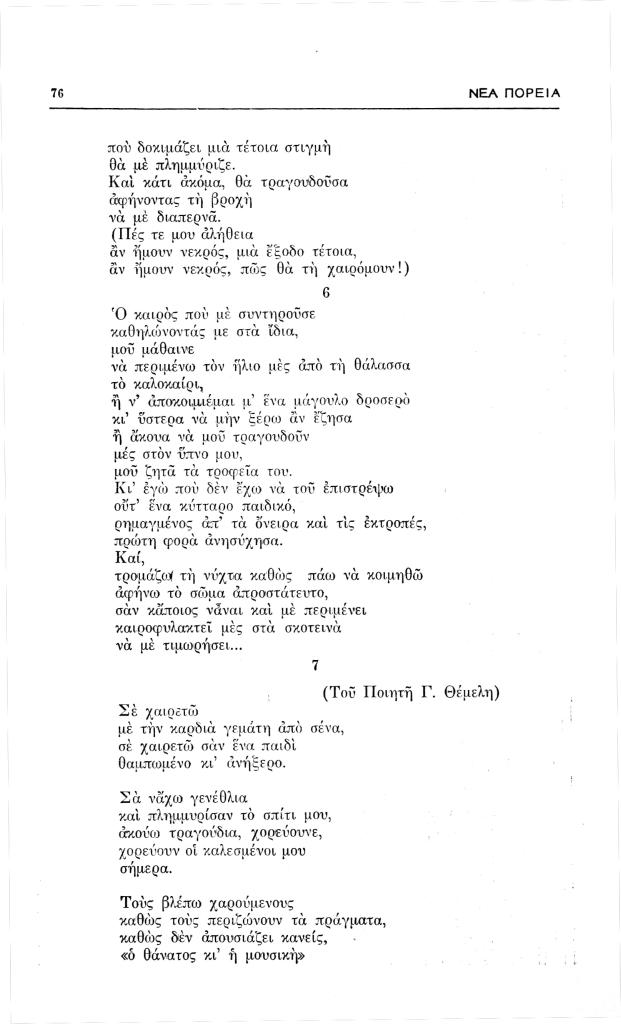 76
ΝΕΑ ΠΟΡΕΙΑ
ποὺ δοκιμάζει μιὰ τέτοια στιγμὴ
θὰ μὲ πλημμύριζε.
Καὶ κάτι ἀκόμα, θὰ τραγουδοῦσα
ἀφήνοντας τὴ βροχὴ
νὰ μὲ διαπερνᾶ.
(Πές τε μου ἀλήθεια
ἂν ἤμουν νεκρός, μιὰ ἔξοδο τέτοια,
ἂν ἤμουν νεκρός, πῶς θὰ τὴ χαιρόμουν!)
6
Ὁ καιρὸς ποὺ μὲ συντηροῦσε
καθηλώνοντάς με στὰ ἴδια,
μοῦ μάθαινε
νὰ περιμένω τὸν ἥλιο μὲς ἀπὸ τὴ θάλασσα
τὸ καλοκαίρι,
ἢ ν' ἀποκοιμιέμαι μ' ἕνα μάγουλο δροσερὸ
κι' ὕστερα νὰ μὴν ξέρω ἂν ἔζησα
ἢ ἄκουα νὰ μοῦ τραγουδοῦν
μές στὸν ὕπνο μου,
μοῦ ζητᾶ τὰ τροφεῖα του.
Κι' ἐγὼ ποὺ δὲν ἔχω νὰ τοῦ ἐπιστρέψω
οὔτ' ἕνα κύτταρο παιδικό,
ρημαγμένος ἀπ' τὰ ὄνειρα καὶ τὶς ἐκτροπές,
πρώτη φορὰ ἀνησύχησα.
Καί,
τρομάζω τὴ νύχτα καθὼς πάω νὰ κοιμηθῶ
ἀφήνω τὸ σῶμα ἀπροστάτευτο,
σὰν κάποιος νἆναι καὶ μὲ περιμένει
καιροφυλακτεῖ μὲς στὰ σκοτεινὰ
νὰ μὲ τιμωρήσει...
7
(Τοῦ Ποιητῆ Γ. Θέμελη)
Σὲ χαιρετῶ
μὲ τὴν καρδιὰ γεμάτη ἀπὸ σένα,
σὲ χαιρετῶ σὰν ἕνα παιδὶ
θαμπωμένο κι' ἀνήξερο.
Σὰ νἄχω γενέθλια
καὶ πλημμυρίσαν τὸ σπίτι μου,
ἀκούω τραγούδια, χορεύουνε,
χορεύουν οἱ καλεσμένοι μου
σήμερα.
Τοὺς βλέπω χαρούμενους
καθὼς τοὺς περιζώνουν τὰ πράγματα,
καθὼς δὲν ἀπουσιάζει κανείς,
«ὁ θάνατος κι' ἡ μουσικὴ»